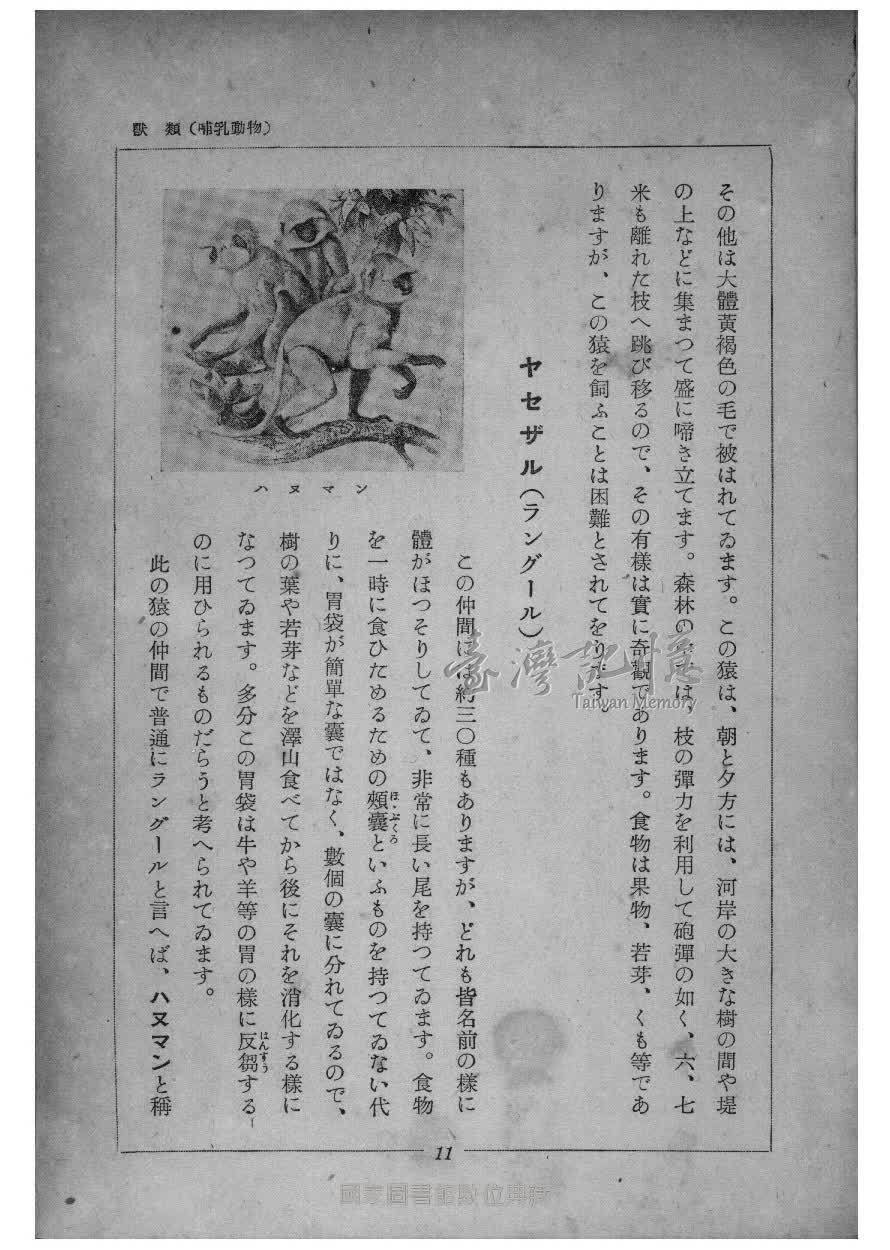 獸類(哺乳動物)
その他は大體黃褐色の毛で被はれてゐます。この猿は、朝と夕方には、河岸の大きな樹の間や堤
の上などに集まつて盛に啼き立てます。森林の では、枝の彈力を利用して砲彈の如く、六、七
米も離れた枝へ跳び移るので、その有樣は實に奇觀であります。食物は果物、若芽、くも等であ
りますが、この猿を飼ふことは困難とされてをります。
ヤセザル(ラングール)
この仲間には約三〇種もありますが、どれも皆名前の樣に
體がほつそりしてゐて、非常に長い尾を持つてゐます。食物
を一時に食ひためるための頰囊といふものを持つてゐない代
ほゝぶくろ
りに、胃袋が簡單な囊ではなく、數個の囊に分れてゐるので、
樹の葉や若芽などを澤山食べてから後にそれを消化する樣に
なつてゐます。多分この胃袋は牛や羊等の胃の樣に反芻する
はんすう
のに用ひられるものだらうと考へられてゐます。
此の猿の仲間で普通にラングールと言へば、ハヌマンと稱
ハヌマン
11
臺灣記憶
Taiwan Memory
國家圖書館數位典藏